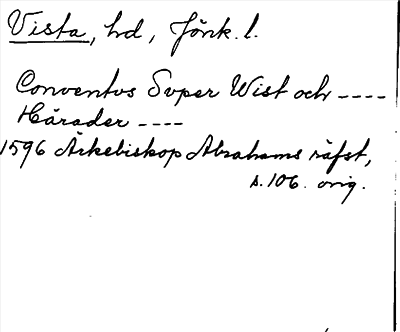 Vista, hd, Jönk. l.
Conventus Super Wist och ----
Härader ----
1596 Ärkebiskop Abrahams räfst,
s. 106. orig.